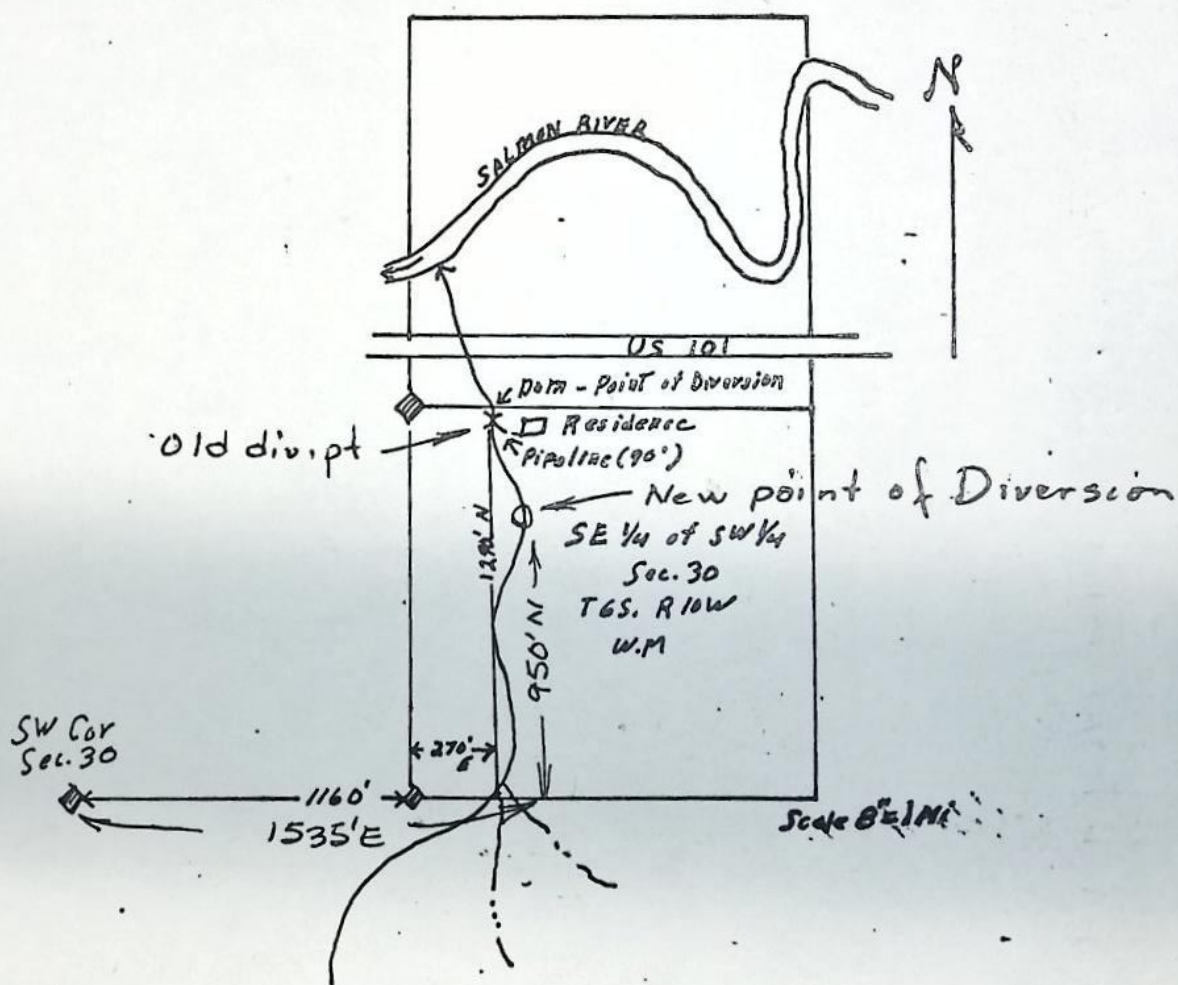 N
SALMON RIVER
US 101
Dam - Point of Diversion
Old div. pt
Residence
Pipeline (90')
New point of Diversion
SE 1/4 of SW 1/4
Sec. 30
T6S. R10W
W.M
1290' N
950' N
SW Cor
Sec. 30
270'
E
1160'
1535' E
Scale 8" = 1 Mi